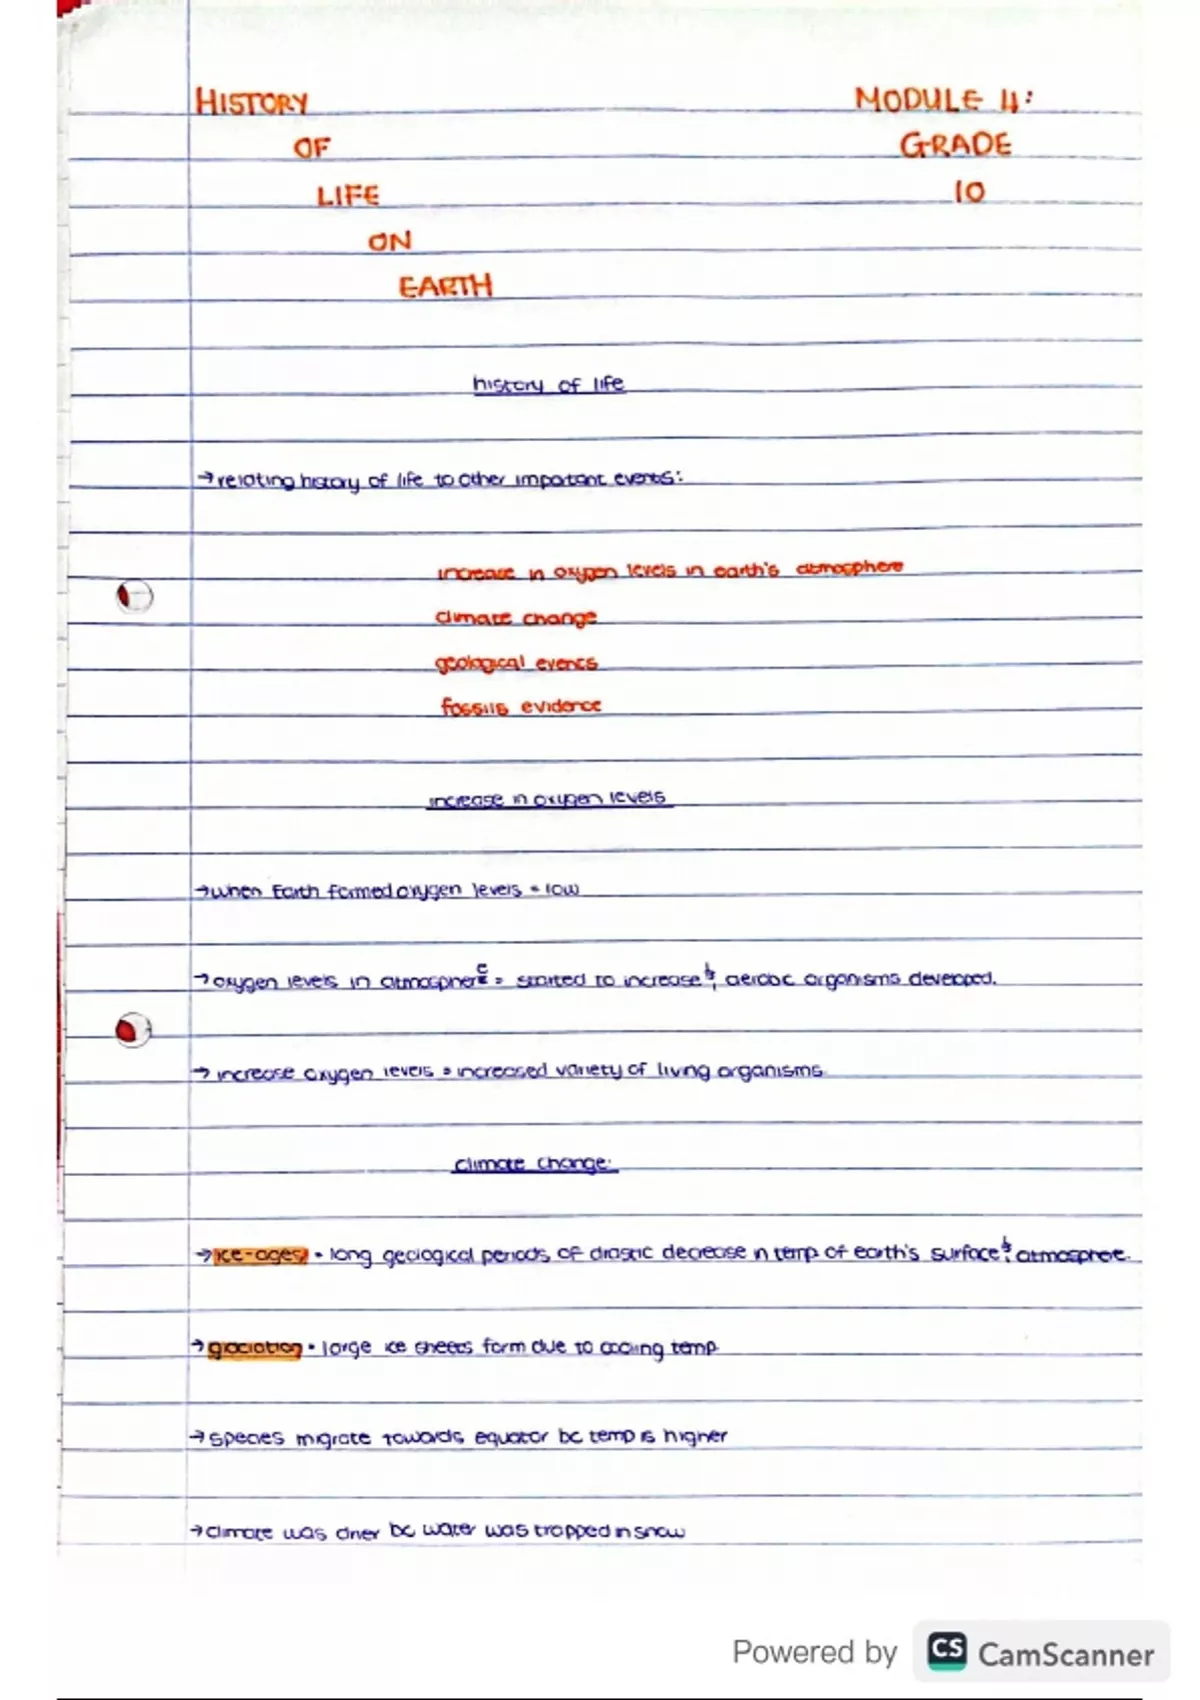 HISTORY MODULE 4:
OF GRADE
LIFE 10
ON
EARTH
history of life
→ relating history of life to other important events:
increase in oxygen levels in earth's atmosphere
climate change
geological events
fossils evidence
increase in oxygen levels
→ when Earth formed oxygen levels = low
→ oxygen levels in atmosphere = started to increase & aerobic organisms developed.
→ increase oxygen levels = increased variety of living organisms.
climate change:
→ ice-ages • long geological periods of drastic decrease in temp of earth's surface & atmosphere.
→ glaciation • large ice sheets form due to cooling temp
→ species migrate towards equator bc temp is higher
→ climate was drier bc water was trapped in snow
Powered by CS CamScanner